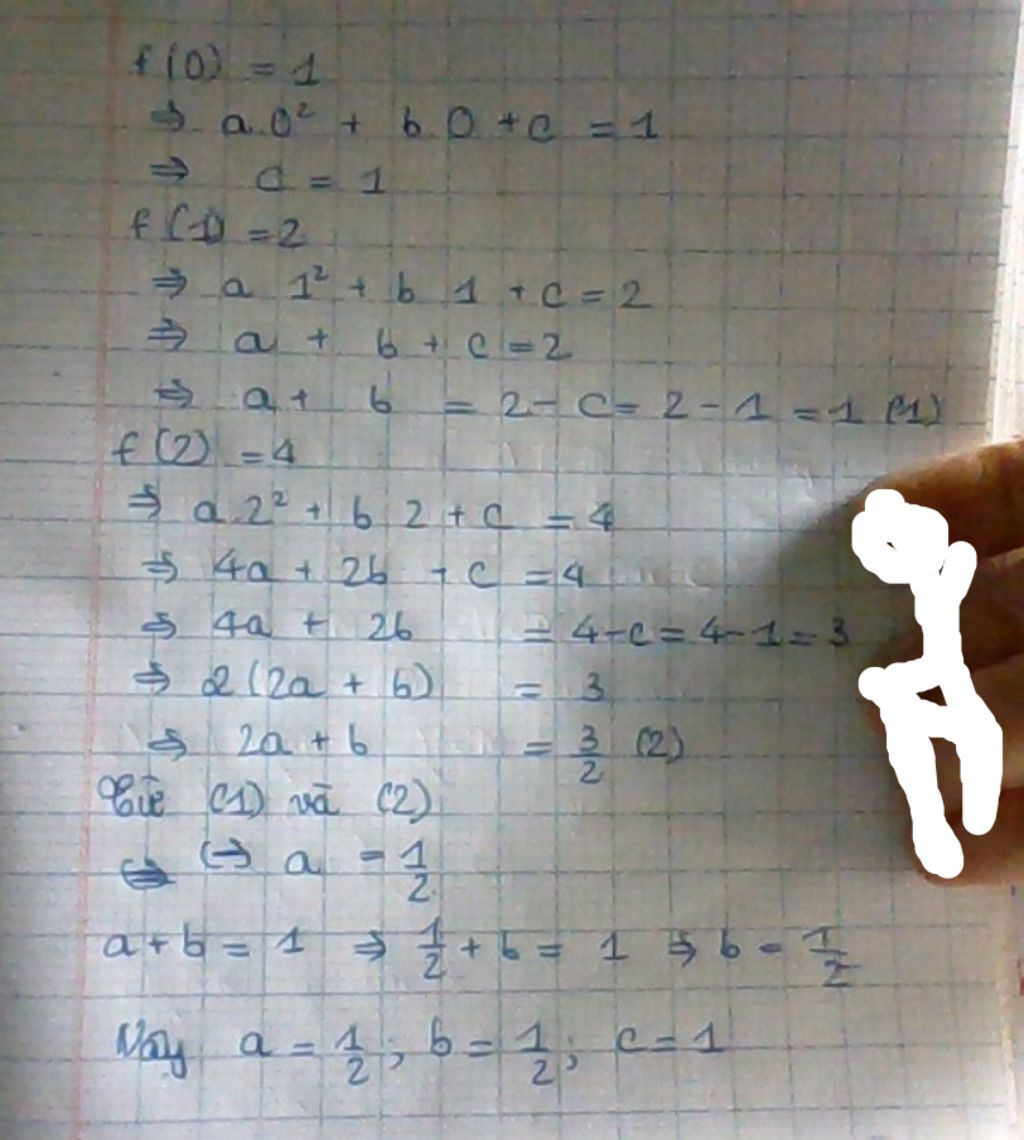 f(0) = 1
⇒ a.0² + b.0 + c = 1
⇒ c = 1
f(1) = 2
⇒ a 1² + b 1 + c = 2
⇒ a + b + c = 2
⇒ a + b = 2 - c = 2 - 1 = 1 (1)
f(2) = 4
⇒ a.2² + b 2 + c = 4
⇒ 4a + 2b + c = 4
⇒ 4a + 2b = 4 - c = 4 - 1 = 3
⇒ 2(2a + b) = 3
⇒ 2a + b = 3/2 (2)
Từ (1) và (2)
(⇒ a = 1/2
a + b = 1 ⇒ 1/2 + b = 1 ⇒ b = 1/2
Vậy a = 1/2; b = 1/2; c = 1